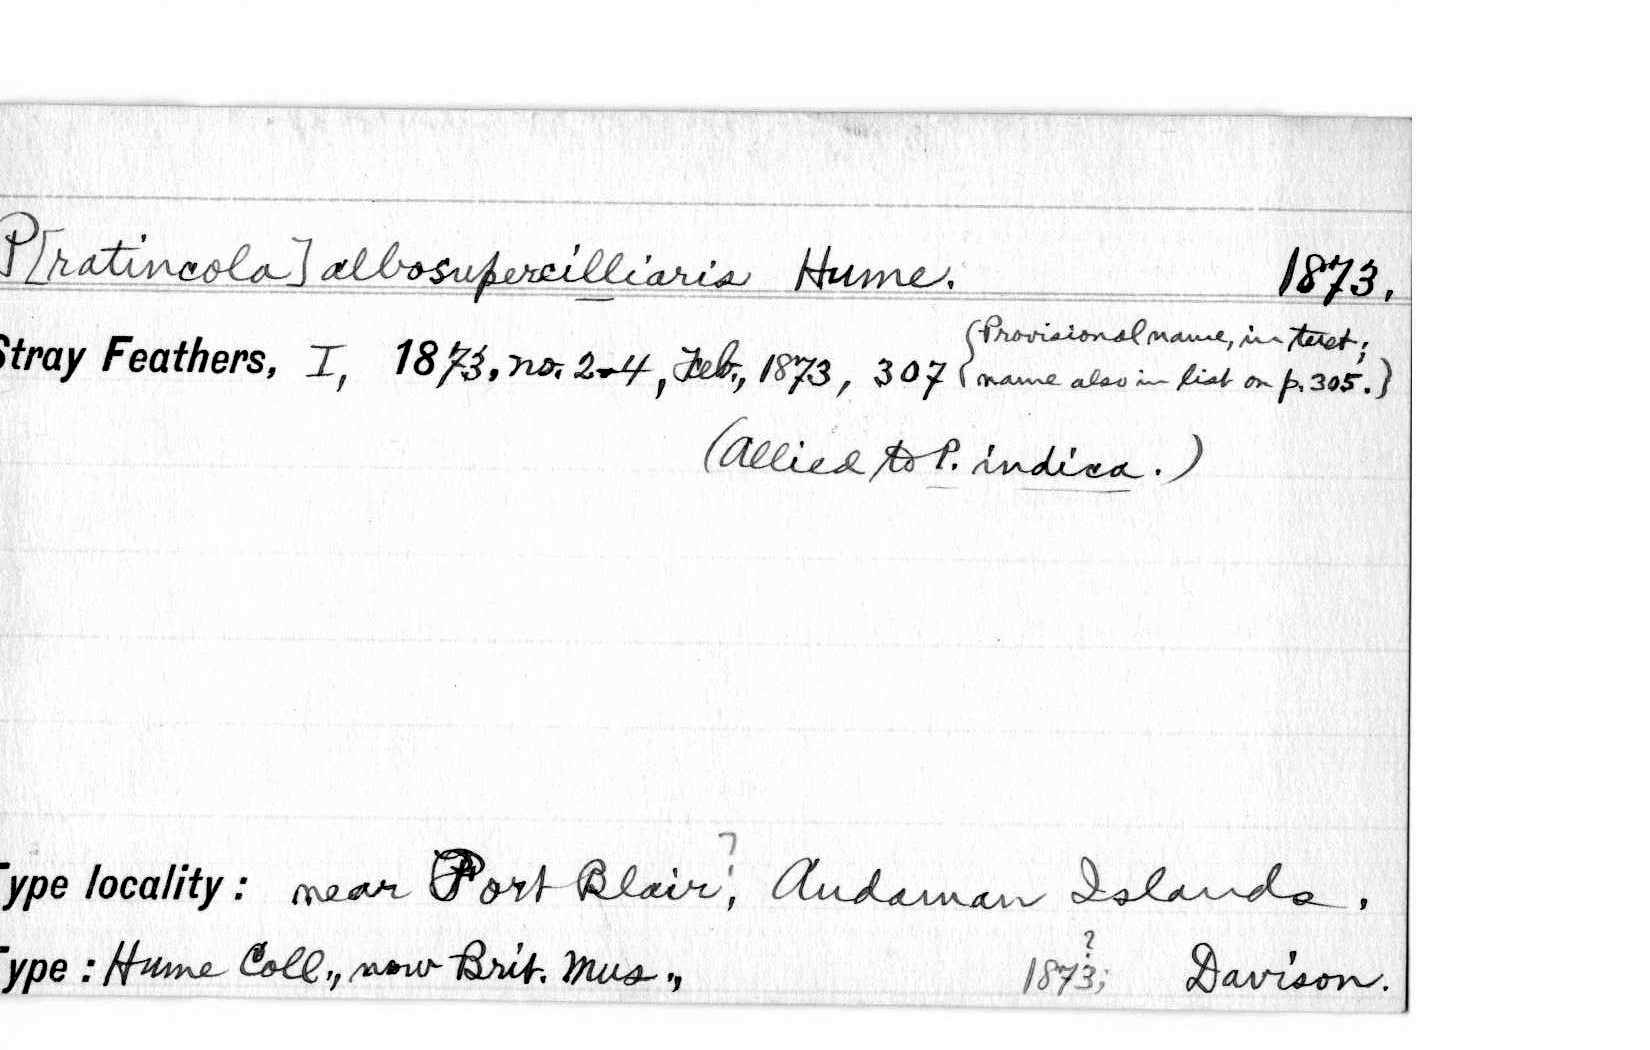 P[ratincola] albosupercilliaris Hume. 1873.
Stray Feathers, I, 1873, no. 2-4, Feb., 1873, 307 {Provisional name, in text;
name also in list on p. 305.}
(Allied to P. indica.)
Type locality: near Port Blair?, Andaman Islands.
Type: Hume Coll., now Brit. Mus., 1873?; Davison.